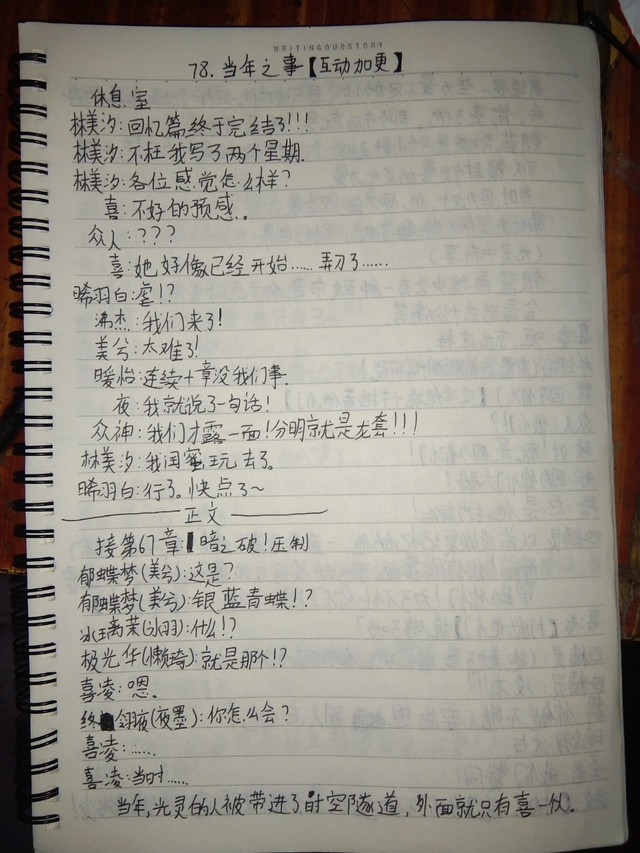 WRITINGOURSTORY
78.当年之事【互动加更】
休息室
林美汐:回忆篇终于完结了!!!
林美汐:不枉我写了两个星期.
林美汐:各位感觉怎么样?
喜:不好的预感..
众人:???
喜:她好像已经开始……弄刀了……
晞羽白:宴!?
沸杰:我们来了!
美兮:太难了!
暖怡:连续十章没我们事.
夜:我就说了一句话!
众神:我们才露一面!分明就是龙套!!!
林美汐:我闺蜜玩去了.
晞羽白:行了。快点了~
正文
接第67章:暗之破!压制
郁蝶梦(美兮):这是?
郁蝶梦(美兮):银蓝青蝶!?
冰璃茉(冰羽):什么!?
极光华(懒琦):就是那个!?
喜凌:嗯。
终翎液(夜墨):你怎么会?
喜凌:……
喜凌:当时……
当年,光灵的人被带进了时空隧道,外面就只有喜一似。